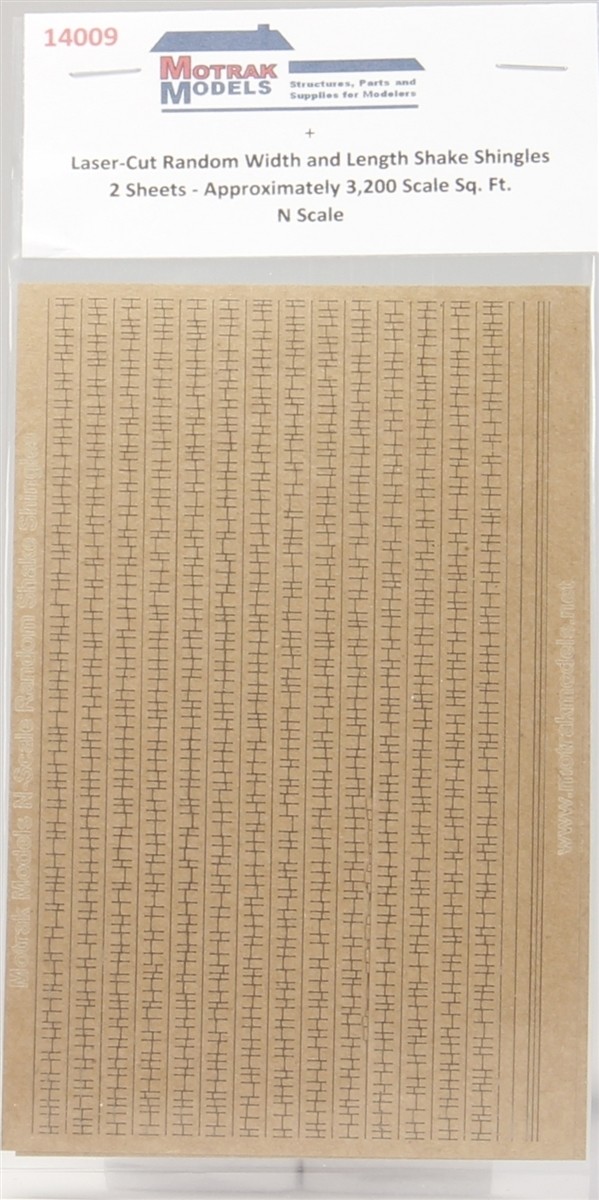 14009
MOTRAK
MODELS
Structures, Parts and
Supplies for Modelers
+
Laser-Cut Random Width and Length Shake Shingles
2 Sheets - Approximately 3,200 Scale Sq. Ft.
N Scale
Motrak Models N Scale Random Shake Shingles
www.motrakmodels.net